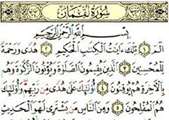 سُورَةُ لُقْمَانَ
بِسْمِ اللَّهِ الرَّحْمَٰنِ الرَّحِيمِ
الٓمٓ ۝ تِلْكَ ءَايَٰتُ الْكِتَٰبِ الْحَكِيمِ ۝ هُدًى وَرَحْمَةً
لِّلْمُحْسِنِينَ ۝ الَّذِينَ يُقِيمُونَ الصَّلَوٰةَ وَيُؤْتُونَ الزَّكَوٰةَ وَهُم
بِالْءَاخِرَةِ هُمْ يُوقِنُونَ ۝ أُو۟لَٰٓئِكَ عَلَىٰ هُدًى مِّن رَّبِّهِمْ وَأُو۟لَٰٓئِكَ
هُمُ الْمُفْلِحُونَ ۝ وَمِنَ النَّاسِ مَن يَشْتَرِى لَهْوَ الْحَدِيثِ